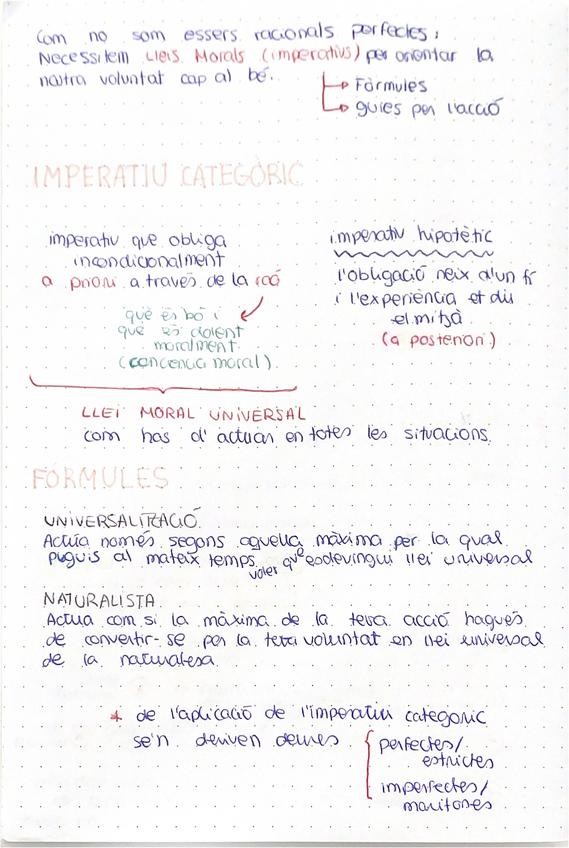 Com no som essers racionals perfectes,
Necessitem Lleis Morals (imperatius) per orientar la
nostra voluntat cap al bé.
Fórmules
guies per l'acció
IMPERATIU CATEGÒRIC
imperatiu que obliga
incondicionalment
a priori a través de la raó
què és bo i
què és dolent
moralment
(conciencia moral)
imperatiu hipotètic
l'obligació neix d'un fi
i l'experiència et diu
el mitjà
(a posteriori)
LLEI MORAL UNIVERSAL
com has d'actuar en totes les situacions.
FÓRMULES
UNIVERSALITZACIÓ
Actúa només segons aquella màxima per la qual
puguis al mateix temps voler que esdevingui llei universal
NATURALISTA
Actua com si la màxima de la teva acció hagués
de convertir-se per la teva voluntat en llei universal
de la naturalesa
* de l'aplicació de l'imperatiu categoric
se'n deriven deures
perfectes/
estrictes
imperfectes/
meritories